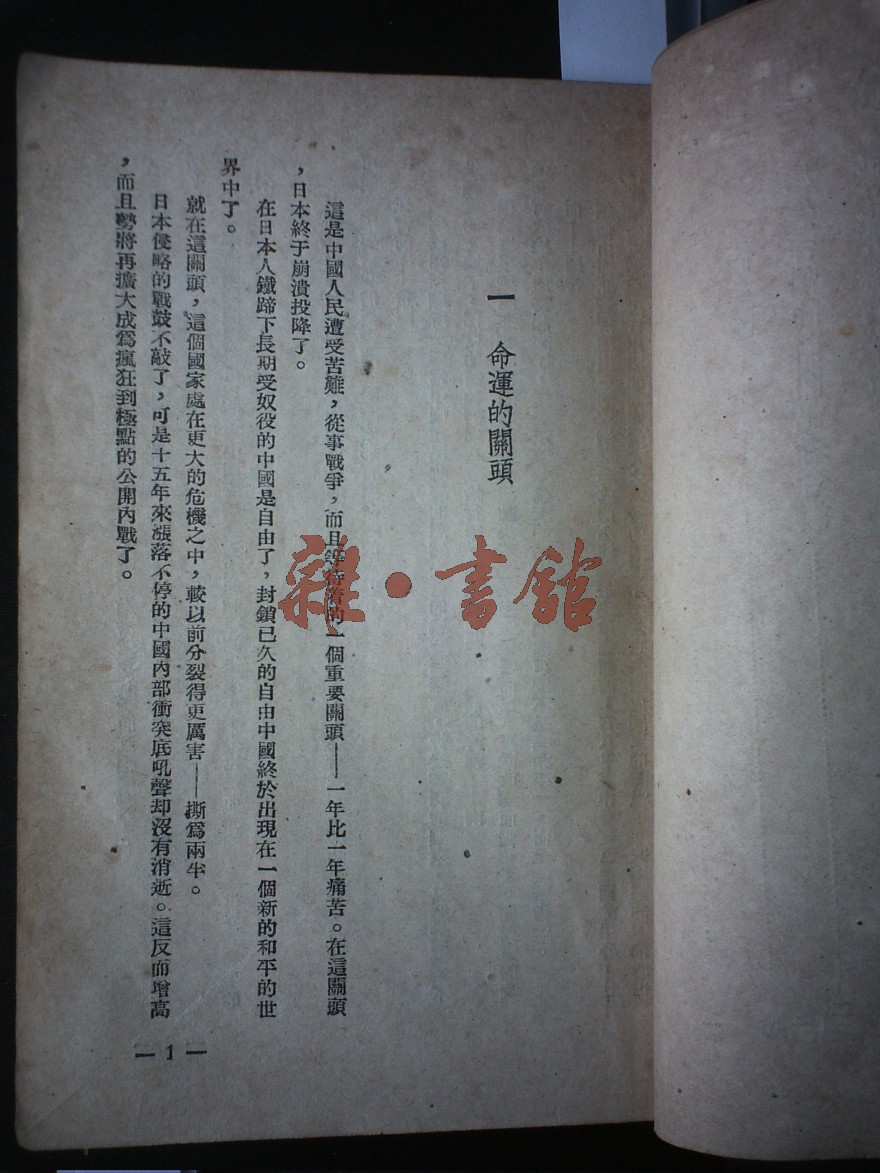 一　命運的關頭
這是中國人民遭受苦難，從事戰爭，而且等待着的一個重要關頭——一年比一年痛苦。在這關頭
，日本終于崩潰投降了。
在日本人鐵蹄下長期受奴役的中國是自由了，封鎖已久的自由中國終於出現在一個新的和平的世
界中了。
就在這關頭，這個國家處在更大的危機之中，較以前分裂得更厲害——撕爲兩半。
日本侵略的戰鼓不敲了，可是十五年來漲落不停的中國內部衝突底吼聲却沒有消逝。這反而增高
，而且勢將再擴大成爲瘋狂到極點的公開內戰了。
— 1 —
雜·書館